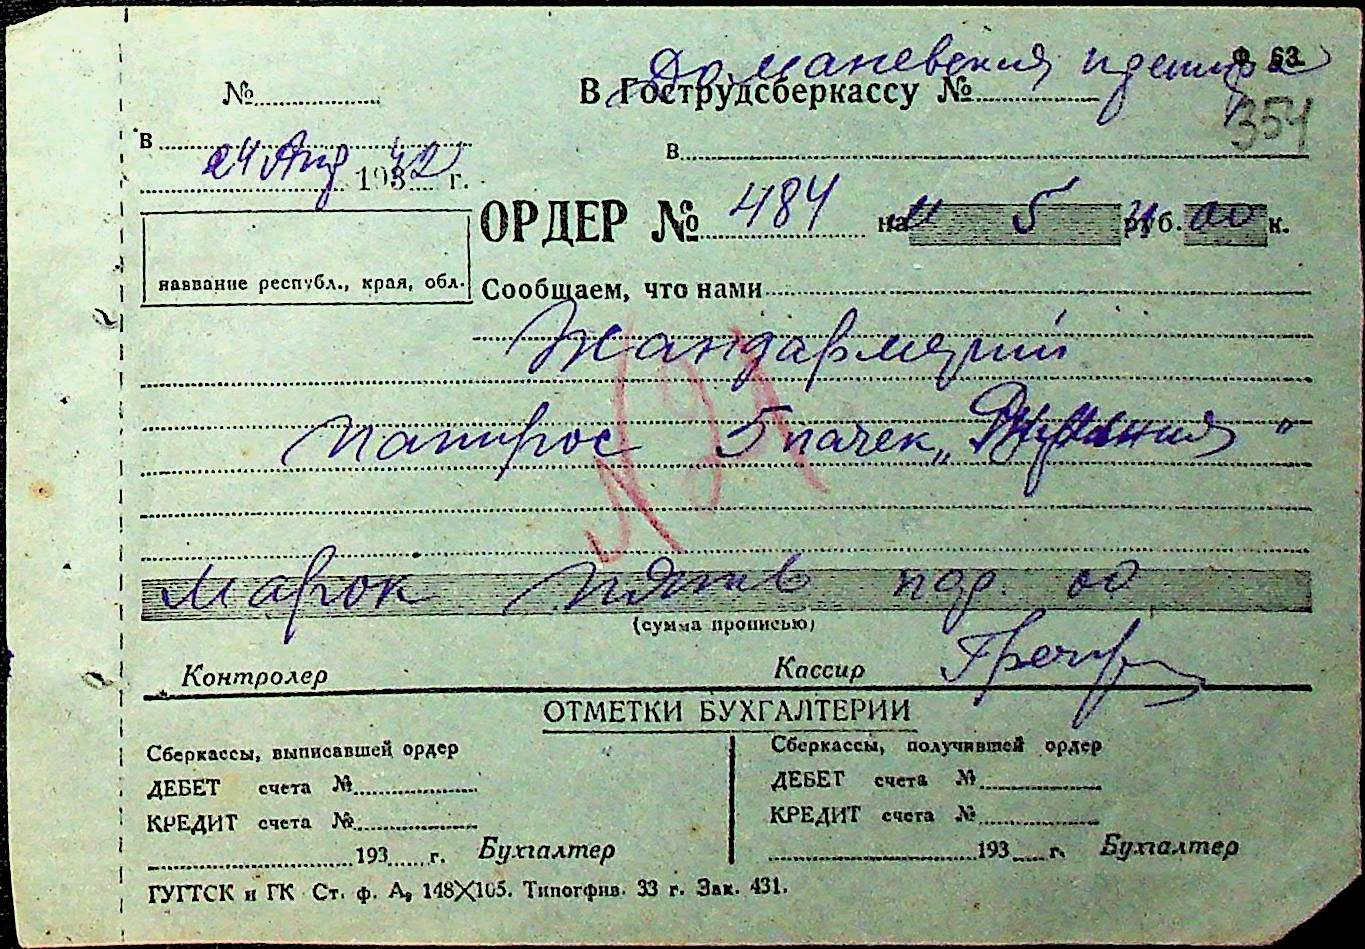 Домановская Ф. 63.
№ В Гострудсберкассу № 354
в
24 Авг 1942 г. в
ОРДЕР № 484 на 5 руб. 00 к.
название республ., края, обл. Сообщаем, что нами
Жандармерии
папирос 5 пачек „ "
№ 21
марок пять пф. 00
(сумма прописью)
Контролер Кассир
ОТМЕТКИ БУХГАЛТЕРИИ
Сберкассы, выписавшей ордер Сберкассы, получившей ордер
ДЕБЕТ счета № ДЕБЕТ счета №
КРЕДИТ счета № КРЕДИТ счета №
193 г. Бухгалтер 193 г. Бухгалтер
ГУГТСК и ГК Ст. ф. А, 148×105. Типогфив. 33 г. Зак. 431.